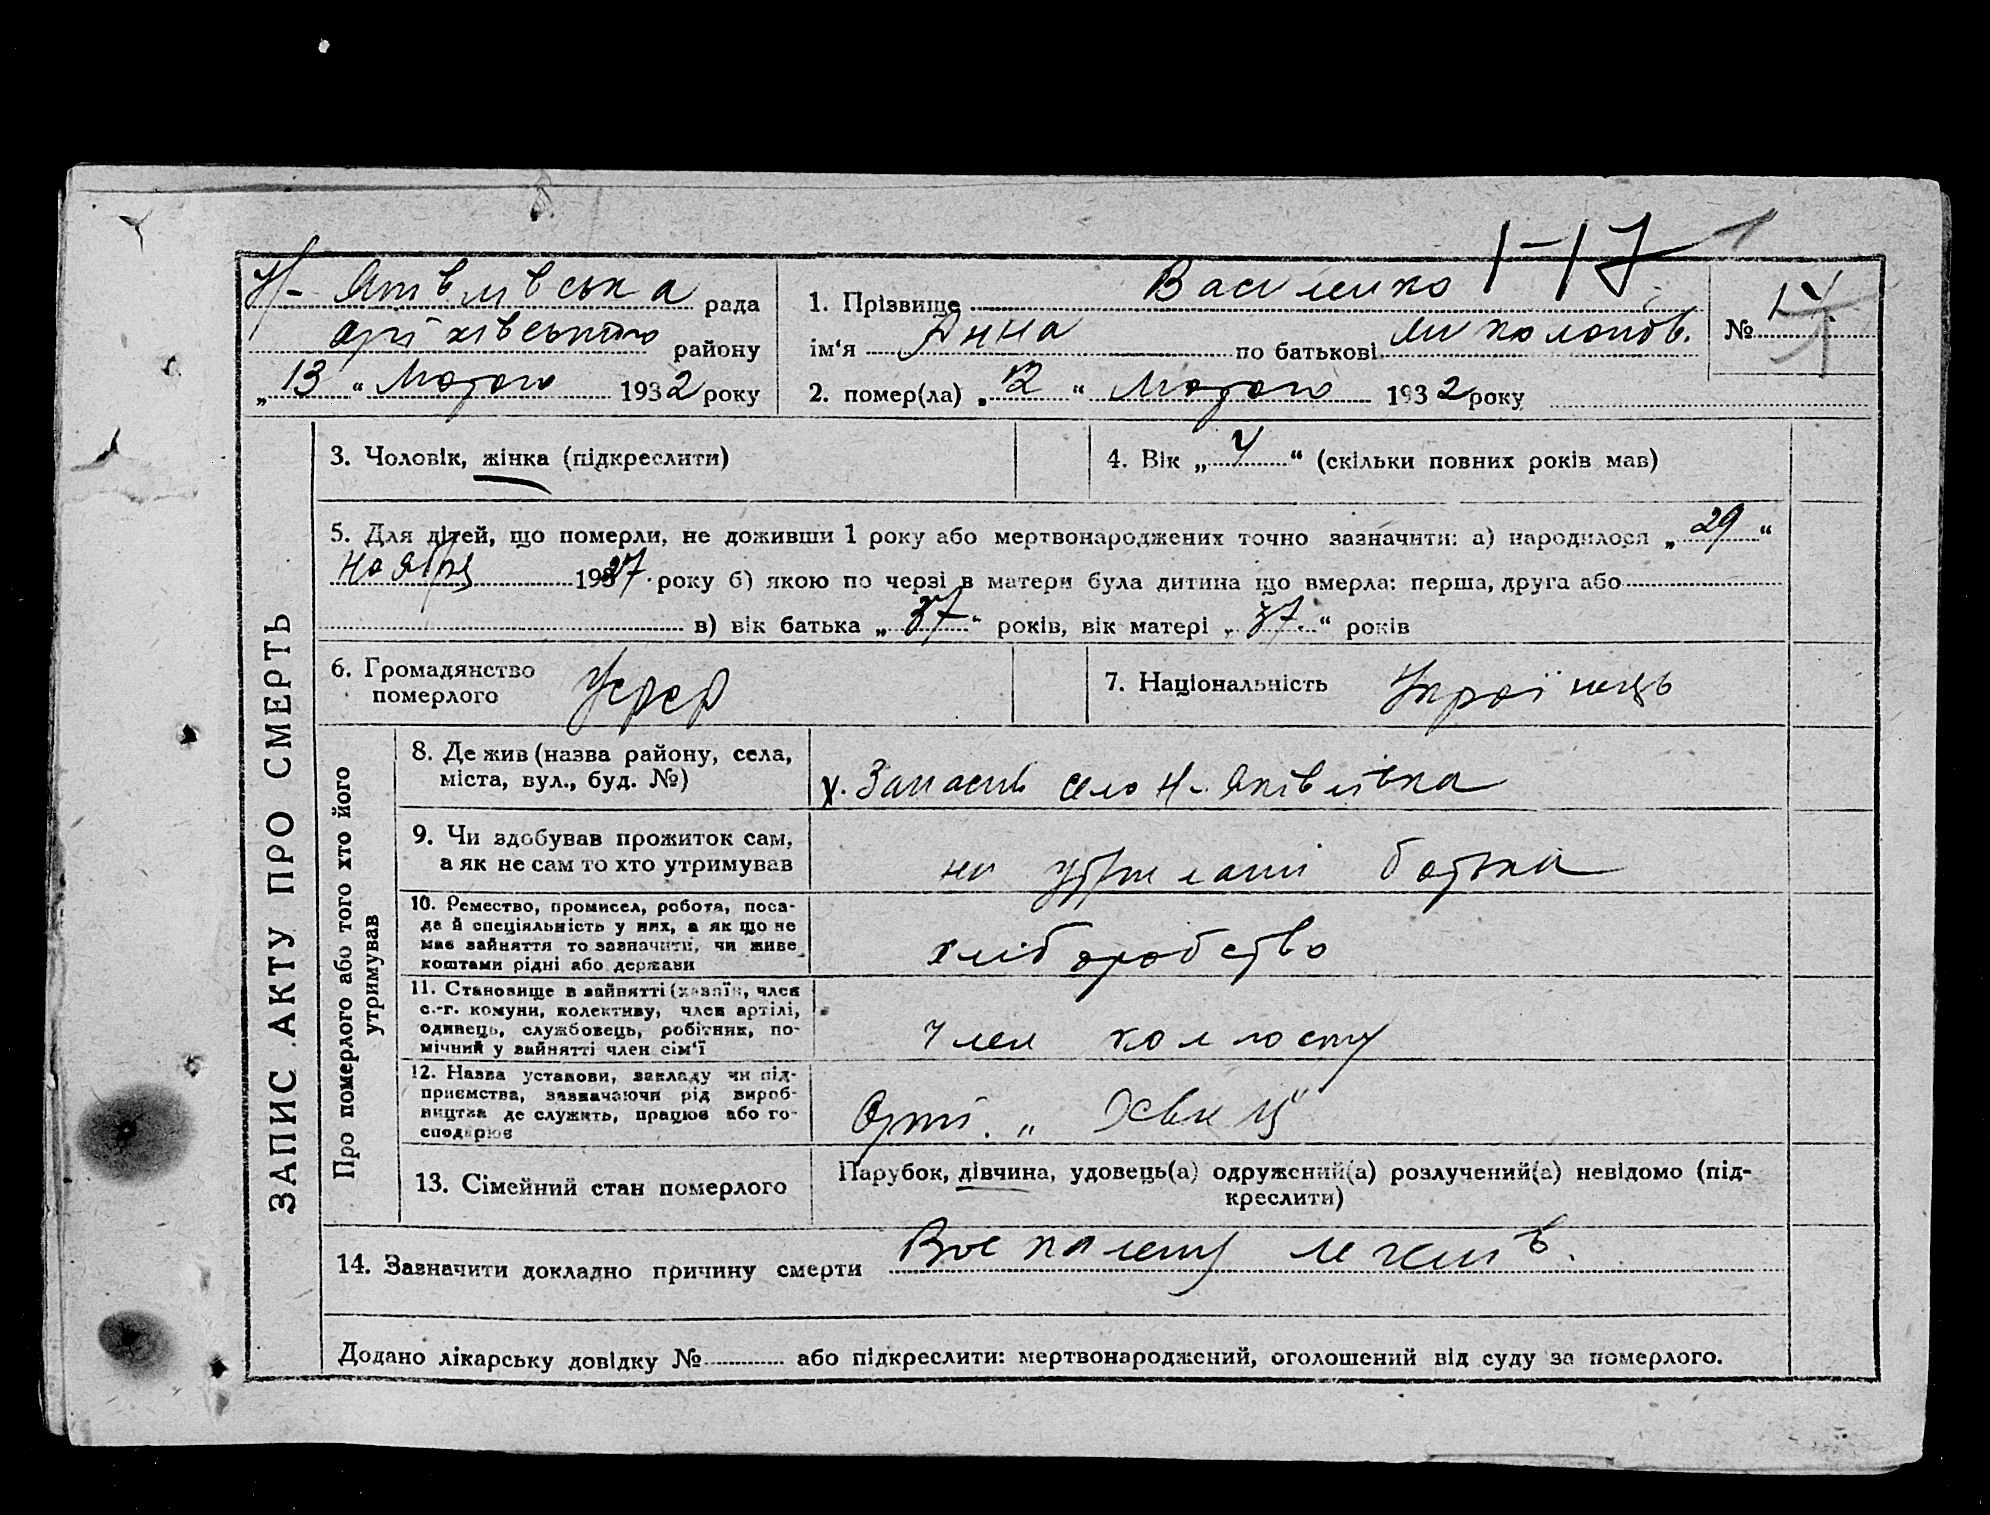 1-17
Н- Яківлівська рада
оріхівського району
„13“ Лютого 1932 року
1. Прізвище Василенко
ім‘я Анна по батькові Миколаїв.
№ 14
2. помер(ла) „12“ Лютого 1932 року
ЗАПИС АКТУ ПРО СМЕРТЬ
3. Чоловік, жінка (підкреслити)
4. Вік „4“ (скільки повних років мав)
5. Для дітей, що померли, не доживши 1 року або мертвонароджених точно зазначити: а) народилося „29“
ноября 1927. року б) якою по черзі в матери була дитина що вмерла: перша, друга або
в) вік батька „37“ років, вік матері „37.“ років
6. Громадянство
померлого
Усрср
7. Національність Украінець
Про померлого або того хто його
утримував
8. Де жив (назва району, села,
міста, вул., буд. №)
х. село Н-Яківлівка
9. Чи здобував прожиток сам,
а як не сам то хто утримував
на батька
10. Ремество, промисел, робота, поса-
да й спеціяльність у них, а як що не
має зайняття то зазначити, чи живе
коштами рідні або держави
хліборобство
11. Становище в зайнятті (хазяїн, член
с.-г. комуни, колективу, член артілі,
одинець, службовець, робітник, по-
мічний у зайнятті член сім‘ї
член
12. Назва установи, закладу чи під-
приємства, зазначаючи рід вироб-
ництва де служить, працює або го-
сподарює
Арті.
13. Сімейний стан померлого
Парубок, дівчина, удовець(а) одружений(а) розлучений(а) невідомо (під-
креслити)
14. Зазначити докладно причину смерти
Додано лікарську довідку № або підкреслити: мертвонароджений, оголошений від суду за померлого.